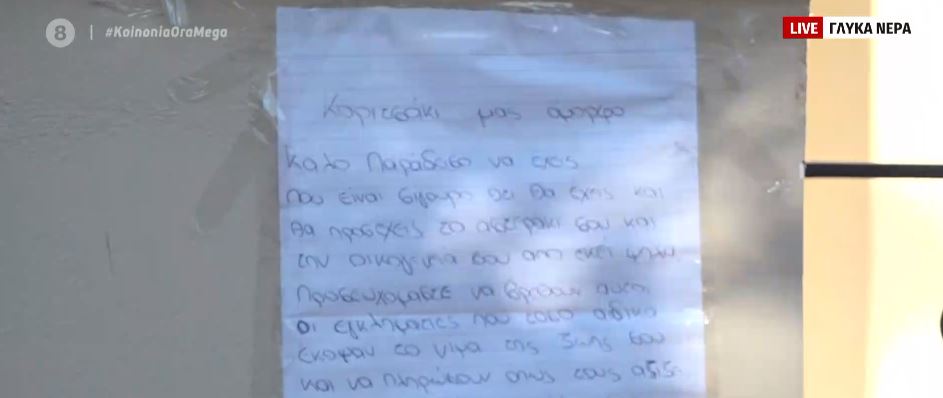 8 | #KoinoniaOraMega
LIVE ΓΛΥΚΑ ΝΕΡΑ
Κοριτσάκι μας όμορφο
Καλό Παράδεισο να εχεις
που είναι σίγουρο οτι θα έχεις και
θα προσέχεις το αστεράκι σου και
την οικογένεια σου απο εκεί ψηλά
Προσευχόμαστε να βρεθούν αυτοί
οι εγκληματίες που τοσο αδικα
εκοψαν το νίμα της ζωής σου
και να πληρώσουν οπως τους αξίζ